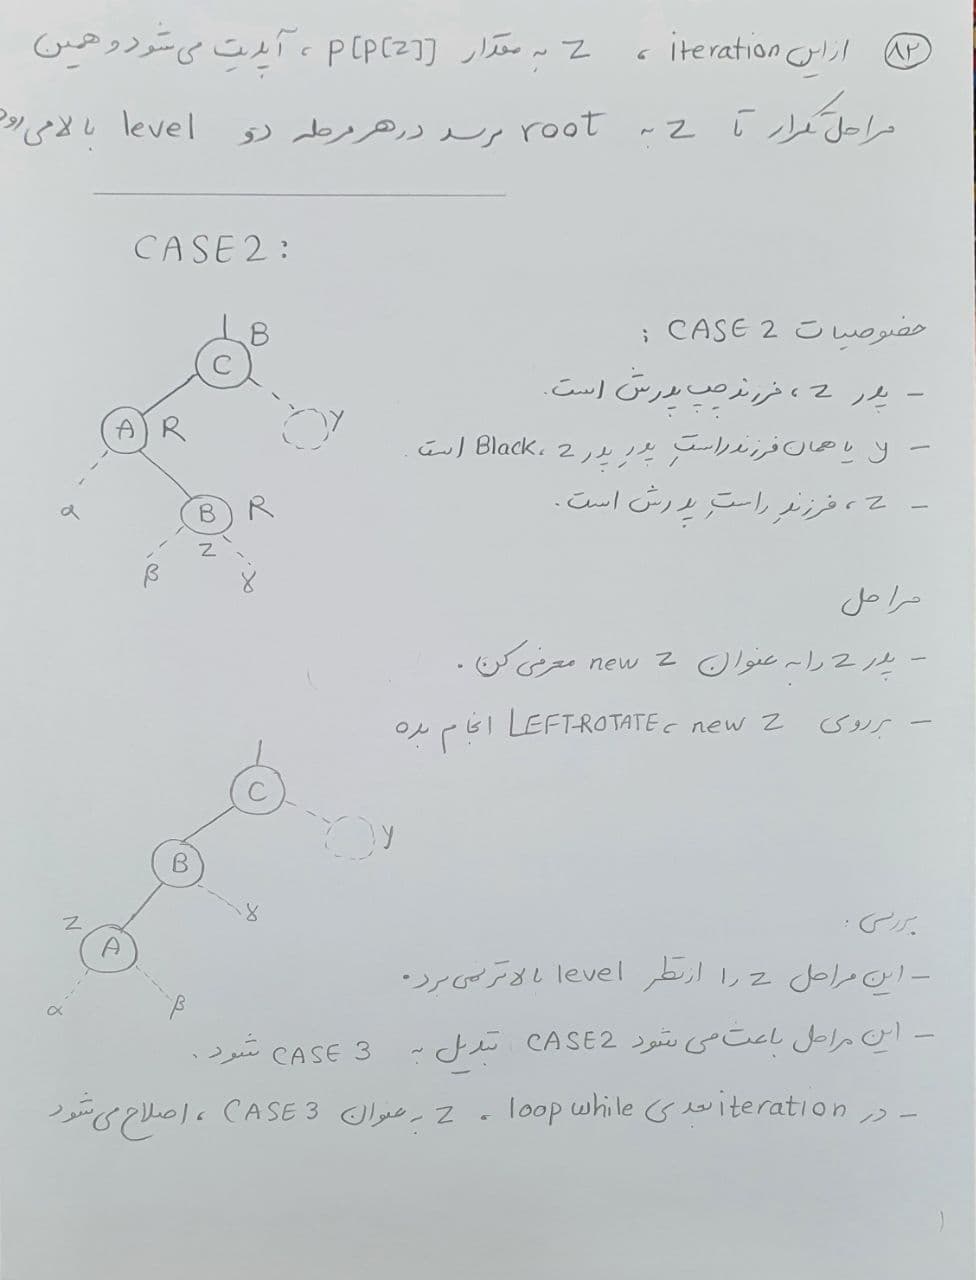 ۸۲ از این iteration ، z به مقدار p[p[z]] ، آپدیت می‌شود و همین
مراحل تکرار تا z به root برسد در هر مرحله دو level بالا می رود
CASE2:
خصوصیات CASE 2 :
- پدر z ، فرزند چپ پدرش است.
- y یا همان فرزند راستِ پدرِ پدر z ، Black است.
- z ، فرزندِ راستِ پدرش است.
B
C
y
A R
α
B R
z
β
γ
مراحل
- پدر z را به عنوان new z معرفی کن.
- بر روی new z ، LEFT-ROTATE انجام بده
C
y
B
γ
z
A
α
β
بررسی:
- این مراحل z را از نظر level بالاتر نمی برد.
- این مراحل باعث می شود CASE2 تبدیل به CASE 3 شود.
- در iteration بعدی loop while ، z به عنوان CASE 3 ، اصلاح می‌شود